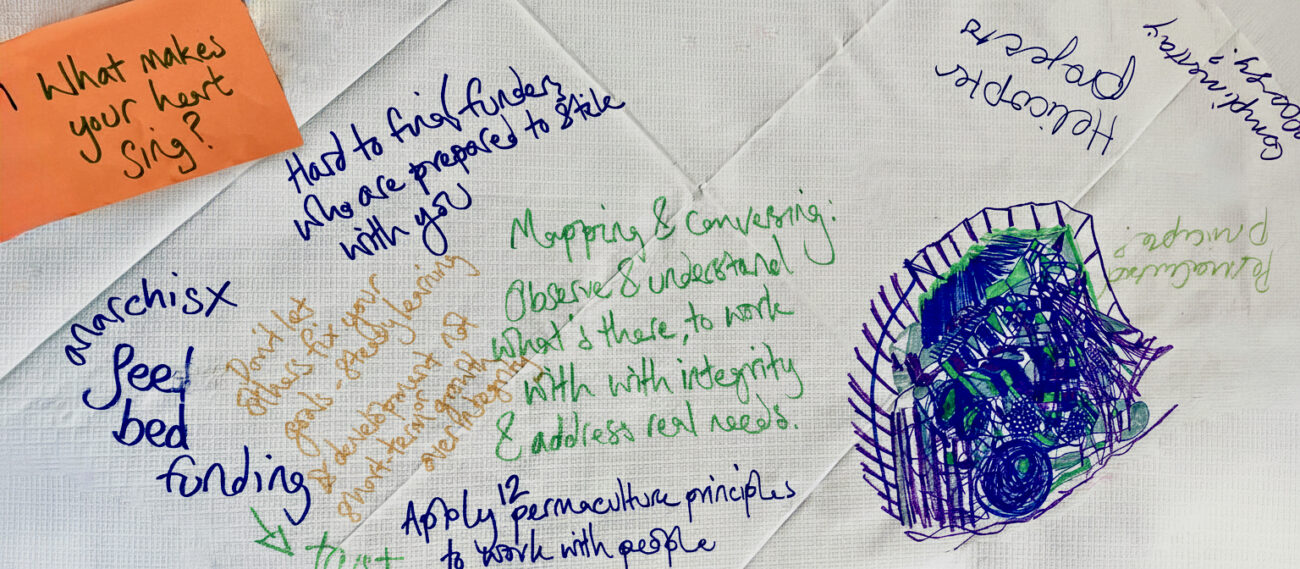 What makes
your heart
sing?
Hard to find funders
who are prepared to stick
with you
Helicopter
projects
Complimentary
Mapping & conversing:
Observe & understand
what's there, to work
with with integrity
& address real needs.
Permaculture
principle?
anarchist
seed
bed
funding
Don't let
others fix your
goals - steady learning
& development not
short-term growth
over integrity
Apply 12 permaculture principles
to work with people